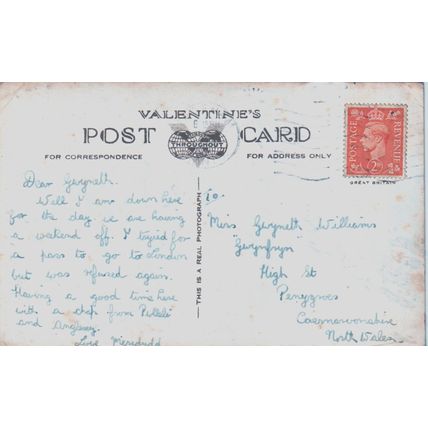 VALENTINE'S
POST CARD
THROUGHOUT
FOR CORRESPONDENCE
FOR ADDRESS ONLY
THIS IS A REAL PHOTOGRAPH
POSTAGE
REVENUE
GREAT BRITAIN
Dear Gwyneth.
Well I am down here
for the day we are having
a weekend off. I tryied for
a pass to go to London
but was refused again.
Having a good time here
with a chap from
and Anglesey.
Love Meredydd
To:
Miss Gwyneth Williams
"Gwynfryn"
High St
Penygroes
Caernarvonshire
North Wales